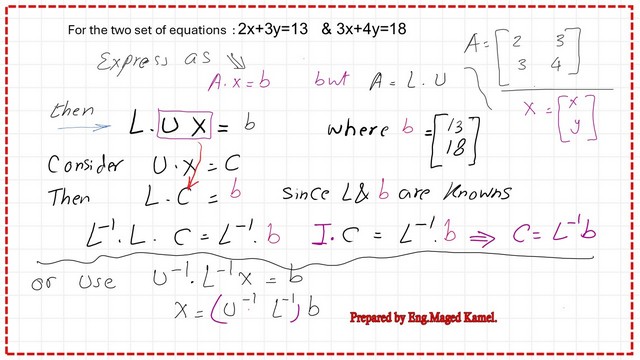 For the two set of equations : 2x+3y=13 & 3x+4y=18
Express as
A = [2 3
3 4]
A.x=b but A=L.U
X = [x
y]
then L.U X = b where b = [13
18]
Consider U.X = C
Then L.C = b Since L & b are knowns
L⁻¹.L. C = L⁻¹.b I.C = L⁻¹.b ⇒ C=L⁻¹b
or use U⁻¹.L⁻¹x = b
X = (U⁻¹ L⁻¹) b
Prepared by Eng.Maged Kamel.